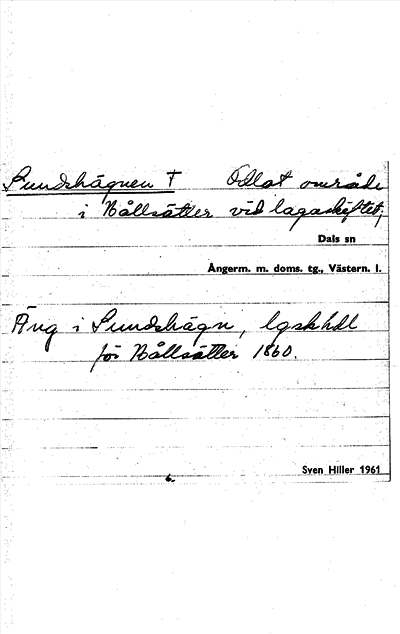 Sundshägnen † Odlat område
i Hållsätter vid lagaskiftet;
Dals sn
Ångerm. m. doms. tg., Västern. l.
Äng i Sundshägn, lgskhdl
för Hållsätter 1860.
Sven Hiller 1961
6.